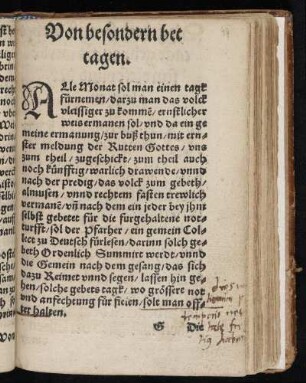 Von besondern bet
tagen.
ALle Monat sol man einen tagk
fürnemen/darzu man das volck
vleissiger zu kommẽ/ernstlicher
weis ermanen sol/vnd da ein ge
meine ermanung/zur buß thun/mit ern=
ster meldung der Rutten Gottes/vns
zum theil/zugeschickt/zum theil auch
noch künfftig/warlich drawende/vnnd
nach der predig/das volck zum gebeth/
almusen/vnnd rechtem fasten trewlich
vermanẽ/vñ nach dem ein jeder bey jhm
selbst gebetet für die fürgehaltene not=
turfft/sol der Pfarher/ein gemein Col=
lect zu Deutsch fürlesen/darinn solch ge=
beth Ordenlich Summirt werdt/vnnd
die Gemein nach dem gesang/das sich
dazu Reimet vnnd segen/lassen hin ge=
hen/solche gebets tagk/wo grössere not
vnd anfechtung für fielen/solt man off=
ter halten.
G Die